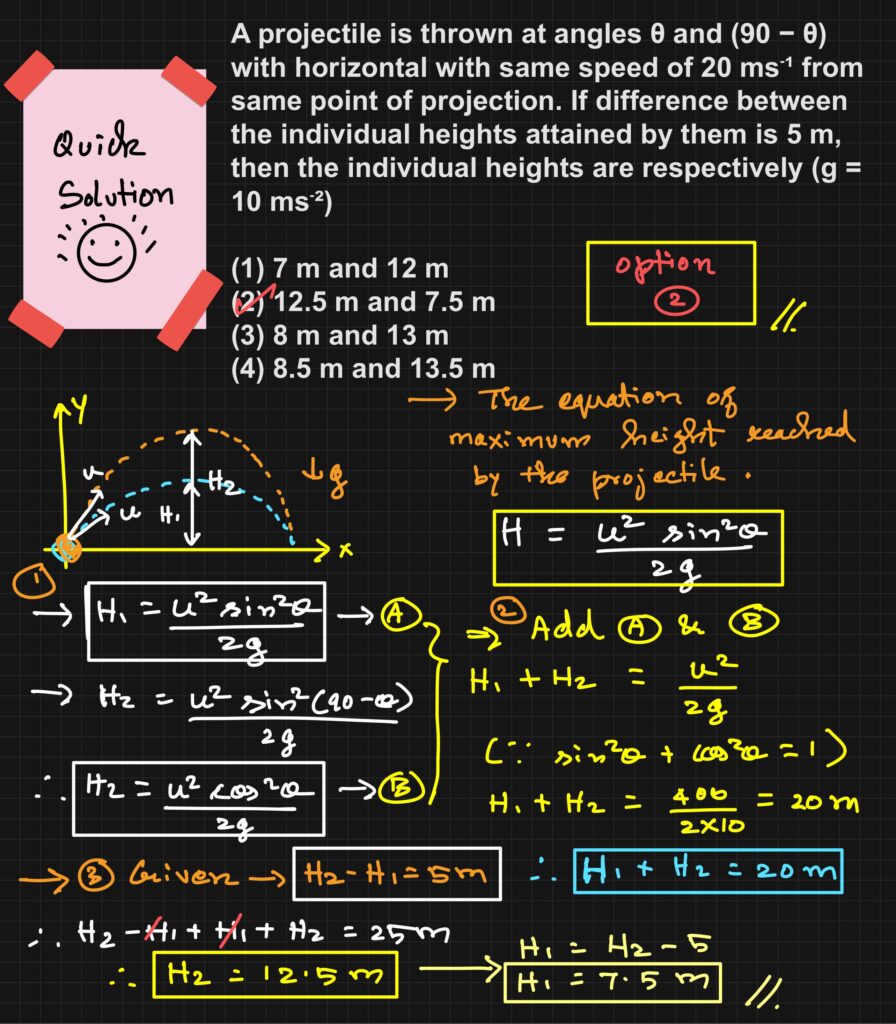 A projectile is thrown at angles θ and (90 − θ)
with horizontal with same speed of 20 ms⁻¹ from
same point of projection. If difference between
the individual heights attained by them is 5 m,
then the individual heights are respectively (g =
10 ms⁻²)
Quick
Solution
(1) 7 m and 12 m
(2) 12.5 m and 7.5 m
(3) 8 m and 13 m
(4) 8.5 m and 13.5 m
option
2
→ The equation of
maximum height reached
by the projectile.
H = u² sin²θ / 2g
y
u
u
H₁
H₂
↓g
x
1
→ H₁ = u² sin²θ / 2g → A
→ H₂ = u² sin²(90-θ) / 2g
∴ H₂ = u² cos²θ / 2g → B
2
⇒ Add A & B
H₁ + H₂ = u² / 2g
(∵ sin²θ + cos²θ = 1)
H₁ + H₂ = 400 / 2×10 = 20 m
∴ H₁ + H₂ = 20 m
→ 3 Given → H₂ - H₁ = 5 m
∴ H₂ - H₁ + H₁ + H₂ = 25 m
∴ H₂ = 12.5 m →
H₁ = H₂ - 5
H₁ = 7.5 m //